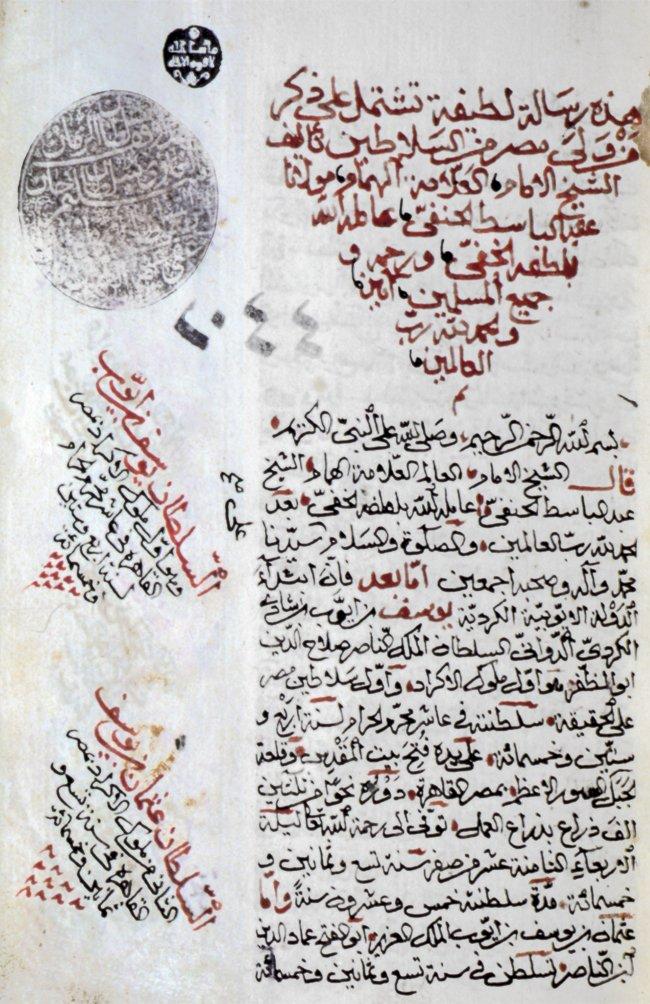 ما شاء الله
لا قوة إلا بالله
هذه رسالة لطيفة تشتمل على ذكر
من ولى مصر من السلاطين تأليف
الشيخ الامام العلامة الهمام مولانا
عبد الباسط الحنفي عامله الله
بلطفه الخفي ورحمه و
جميع المسلمين امين
والحمد لله رب
العالمين
م
١٠٤٤
بسم الله الرحمن الرحيم وصلى الله على النبى الكريم
قال الشيخ الامام العالم العلامة الهمام الشيخ
عبد الباسط الحنفي عامله الله بلطفه الخفي بعد
حمد لله رب العالمين والصلوة والسلام سيدنا
محمد وآله وصحبه اجمعين اما بعد فان ابتداء
الدولة الايوبية الكردية يوسف بن ايوب بن شادى
الكردي الدوانى السلطان الملك الناصر صلاح الدين
ابو المظفر هو اول ملوك الاكراد واول سلاطين مصر
على الحقيقة سلطنته فى عاشر محرم الحرام لسنة اربع و
ستين وخمسمائة على يده فتح بيت المقدس وقلعة
الجبل السور الاعظم بمصر القاهرة دوره نحوا من ثلثين
الف ذراع بذراع العمل توفى الى رحمة الله تعا ليلة
الاربعاء الثامنة عشر من صفر سنة تسع وثمانين و
خمسمائة مدة سلطنته خمس وعشرون سنة واما
عثمان بن يوسف بن ايوب الملك العزيز ابو الفتح عماد الدين
ابن الناصر تسلطن فى سنة تسع وثمانين وخمسمائة
السلطان يوسف بن ايوب
وهو اول ملوك الاكراد بمصر
القاهرة فى عاشر محرم الحرام
لسنة اربع وستين
وخمسمائة
السلطان عثمان بن يوسف
الثانى من ملوك الاكراد بمصر
القاهرة فى سنة تسع و
ثمانين وخمسمائة